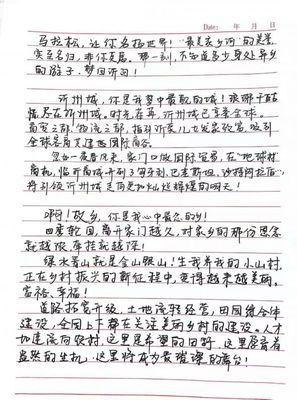 Date: 年 月 日
马拉松，让你名扬世界！"最美家乡河"的美誉，
实至名归，非你莫属。那一刻，不知道多少身处异乡
的游子，梦回沂河！
沂州城，你是我梦中最靓的城！琅琊千古
情尽在沂州城。时光荏苒，沂州城已享誉全球。
商贸之都，物流之都，指引沂蒙儿女发家致富，吸引
全球客商共建进国际商谷。
忽如一夜春风来，家门口做国际贸易，在"地球村"
商机，临沂商城开到了匈牙利、巴基斯坦、沙特阿拉伯……
将引领沂州城走向更加灿烂辉煌的明天！
啊！故乡，你是我心中最念的乡！
四季轮回，离开家门越久，对家乡的那份思念
就越浓，牵挂就越深！
绿水青山就是金山银山！生我养我的小山村，
正在乡村振兴的新征程中，变得越来越美丽、
富裕、幸福！
道路拓宽升级，土地流转经营，田园综合体
建设，全国上下都在关注美丽乡村的建设。人才
加速流向农村，这里是希望的田野，这里孕育着
盎然的生机，这里将成为最璀璨的舞台！